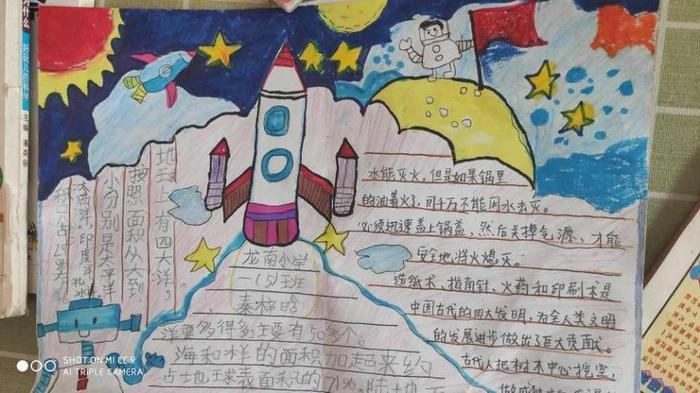 地球上有四大洋,
按照面积从大到
小分别是太平洋
大西洋、印度洋、北冰
龙南小学
一(5)班
秦梓晗
洋要多得多主要有50多个。
海和样的面积加起来约
占地球表面积的71%,陆地
水能灭火,但是如果锅里
的油着火了,可千万不能用水去灭。
必须迅速盖上锅盖,然后关掉气源,才能
安全地将火熄灭。
造纸术、指南针、火药和印刷术是
中国古代的四大发明,为全人类文明
的发展进步做出了巨大贡献。
古代人把树木中心挖空,
做成
SHOT ON MI CC 9
AI TRIPLE CAMERA